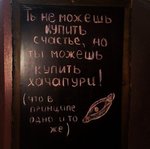 Ты не можешь
купить
счастье, но
ты можешь
купить
хачапури!
(что в
принципе
одно и то
же)